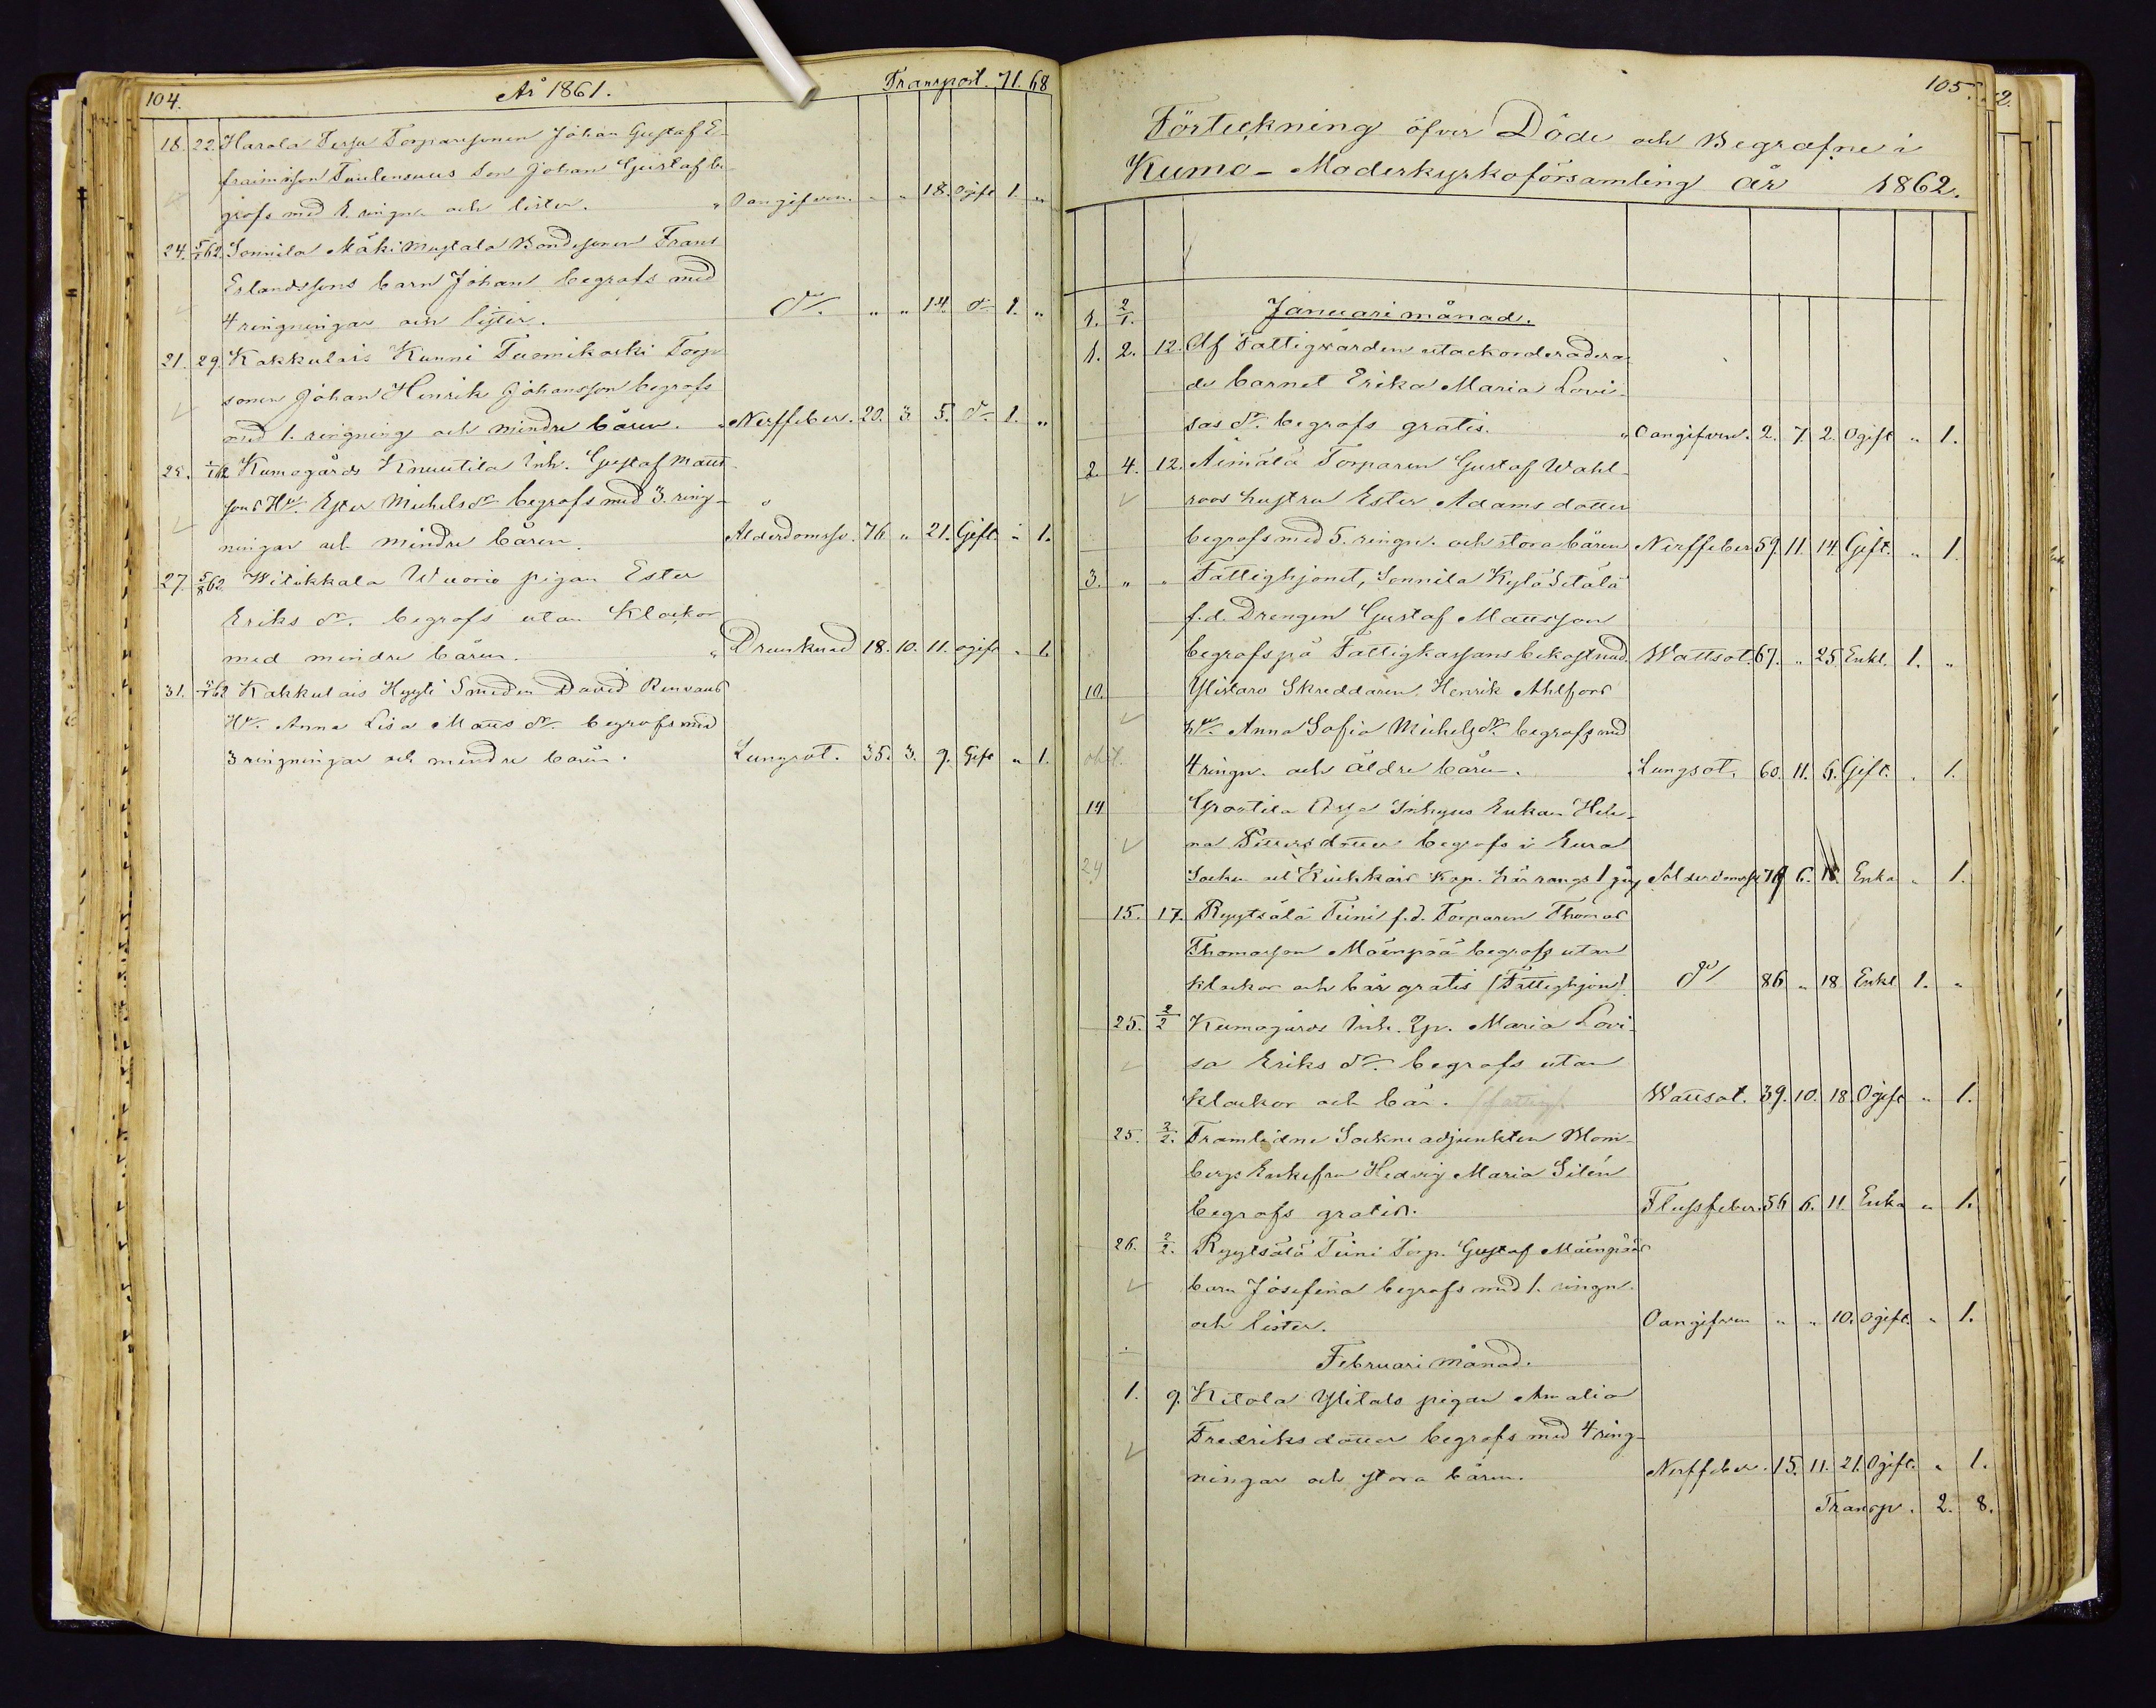 104. År 1861. Transport. 71. 68
18. 22. Harola Persu Torparesonen Johan Gustaf E-
fraimsson Tuulensuus Son Johan Gustaf be-
grofs med 1. ringn. och lister. " Oangifven. " " 18. Ogift 1. "
24. 5/1 62. Sonnila Mäki Mastala Bondesonen Frans
Erlandssons barn Johan begrofs med
4 ringningar och lister. do. " " 14. do 1. "
21. 29. Kakkulais Kunni Tuomikoski Torp-
sonen Johan Henrik Johansson begrofs
med 1. ringning och mindre båren. " Nerffeber. 20. 3 5. do 1. "
25. 1/1 62 Kumogårds Knuutila Inh. Gustaf Matts-
sons Hu. Ester Michelsdr begrofs med 3. ring-
ningar och mindre båren. Ålderdomssv. 76 " 21. Gift. " 1.
27. 5/8 62. Witikkala Wuorio pigan Ester
Eriks dr. begrofs utan Klockor
med mindre båren. " Drunknad 18. 10. 11. ogift " 1.
31. 5/1 62 Kakkulais Hyyti Smeden David Renvans
Hu. Anna Lisa Matts dr. begrofs med
3 ringningar och mindre båren. Lungsot. 35. 3. 9. Gift " 1.
105.
Förteckning öfver Döde och Begrafne i
Kumo - Moderkyrkoförsamling år 1862.
1. 2/1. Januari månad.
1. 2. 12. Af Fattigvården utackorderade
de barnet Erika Maria Lovi-
sas dr. begrofs gratis. " Oangifven. 2. 7. 2. Ogift " 1.
2. 4. 12. Äimälä Torparen Gustaf Wahl-
roos hustru Ester Adamsdotter
begrofs med 5. ringn. och stora båren Nerffeber 59. 11. 14. Gift. " 1.
3. " " Fattighjonet, Sonnila Kylä Setälä
f.d. Drengen Gustaf Mattsson
begrofs på Fattigkassans bekostnad. Wattsot. 67. " 25. Enkl. 1. "
10. Ylistaro Skreddaren Henrik Ahlfors
hu. Anna Sofia Michels dr. begrofs med
4 ringn. och äldre båren. Lungsot. 60. 11. 6. Gift. " 1.
14 Inhyses Enkan Hele-
na dotter begrofs i Eura
24 Socken och Kap. här rangs 1 gång Ålderdomssv 6. Enka " 1.
15. 17. Ryytsälä Teini f.d. Torparen Thomas
Thomasson Mäenpää begrofs utan
klockor och bår gratis (Fattighjon) do/ 86 " 18 Enkl 1. "
25. 2/2 Kumogårds Inh. Qp. Maria Lovi-
sa Eriks dr. begrofs utan
Klockor och bår. (fattig). Wattsot. 39. 10. 18. Ogift " 1.
25. 2/2. Framlidne Sockne adjunkten Blom-
bergs Enkefru Hedvig Maria Silén
begrofs gratis. Flussfeber. 56 6. 11. Enka " 1.
26. 2/2. Ryytsälä Teini Torp. Gustaf Mäenpääs
barn Josefina begrofs med 1. ringn.
och lister. Oangifven " " 10. ogift. " 1.
Februari månad.
1. 9. Ylitalo pigan Amalia
Fredriksdotter begrofs med 4 ring-
ningar och stora båren. Nerffeber. 15. 11. 21. Ogift. " 1.
Transp. 2. 8.